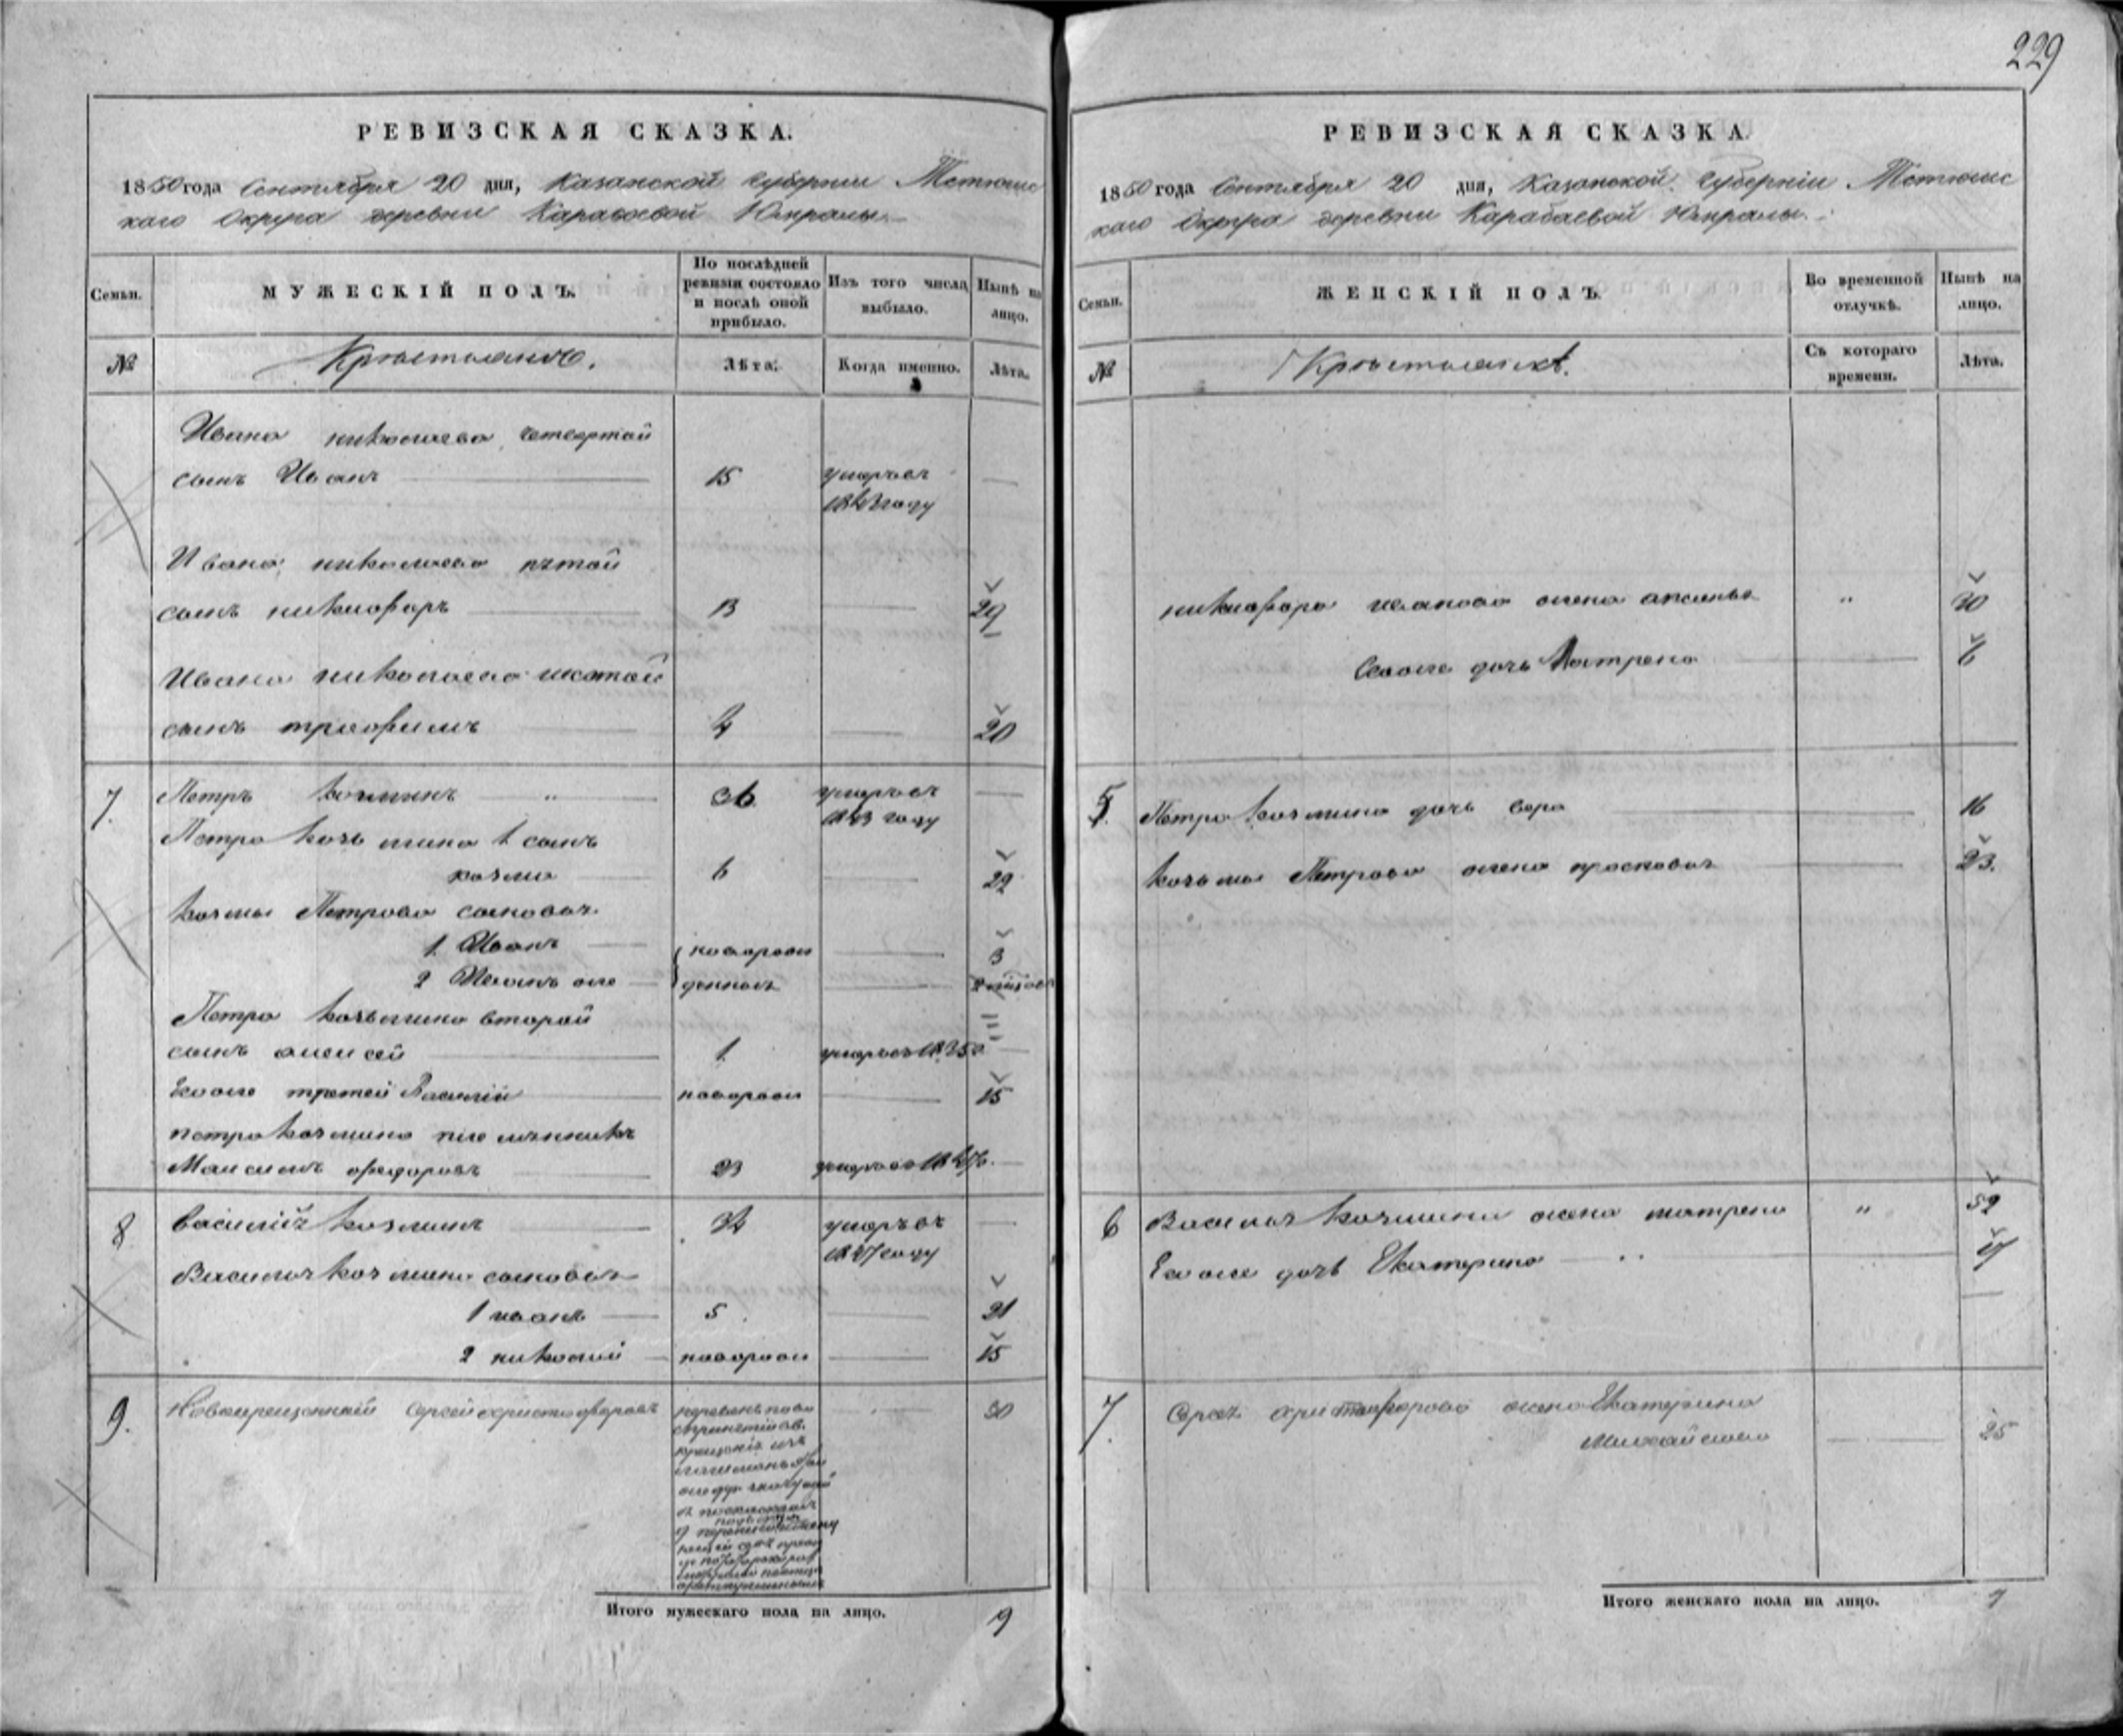 229
РЕВИЗСКАЯ СКАЗКА.
1850 года Сентября 20 дня, Казанской Губернии Тетюшс
каго Округа деревни Караваевой Юнпралы
Семьи.
МУЖЕСКІЙ ПОЛЪ.
По послѣдней ревизіи состояло и послѣ оной прибыло.
Изъ того числа выбыло.
Нынѣ на лицо.
№
Крестьяне.
Лѣта.
Когда именно.
Лѣта.
Ивана николаева четвертой
сынъ Иванъ 15 умеръ въ —
1843 году
Ивана николаева пятой
сынъ никифоръ 13 — 29
Ивана николаева шестой
сынъ трофимъ 4 — 20
7. Петръ козминъ " 36 умеръ въ —
1843 году
Петра козьмина 1 сынъ
козма 6 — 22
козмы Петрова сыновья
1 Иванъ новорож — 3
2 Иванъ же денные —
Петра козьмина второй
сынъ алексей 1 умеръ въ 1835 —
Его же третей Василій новорож — 15
петра козмина племянникъ
Максимъ федоровъ 23 умеръ въ —
8 василій козминъ 34 умеръ въ —
1847 году
Василья козмина сыновья
1 иванъ 5 — 21
2 николай новорож — 15
9. Новокрещенный Сергей христофоровъ — 30
Итого мужескаго пола на лицо. 9
РЕВИЗСКАЯ СКАЗКА.
1850 года Сентября 20 дня, Казанской Губерніи Тетюшс
каго Округа деревни Карабаевой Юнпралы.
Семьи.
ЖЕНСКІЙ ПОЛЪ.
Во временной отлучкѣ.
Нынѣ на лицо.
№
Крестьянскъ.
Съ котораго времени.
Лѣта.
никифора иванова жена аксинья " 30
Его же дочь Матрена — 6
5. Петра козмина дочь вера — 16
козьмы Петрова жена прасковья — 23.
6 Василья козмина жена матрена " 52
Его же дочь Екатерина — 17
7. Сергея христофорова жена Екатерина
Михайлова — 25
Итого женскаго пола на лицо. 7